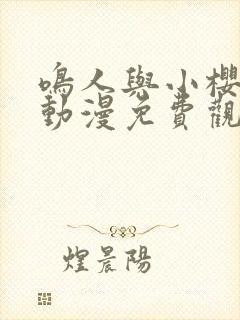 鳴人與小櫻
動漫免費觀
煌晨陽